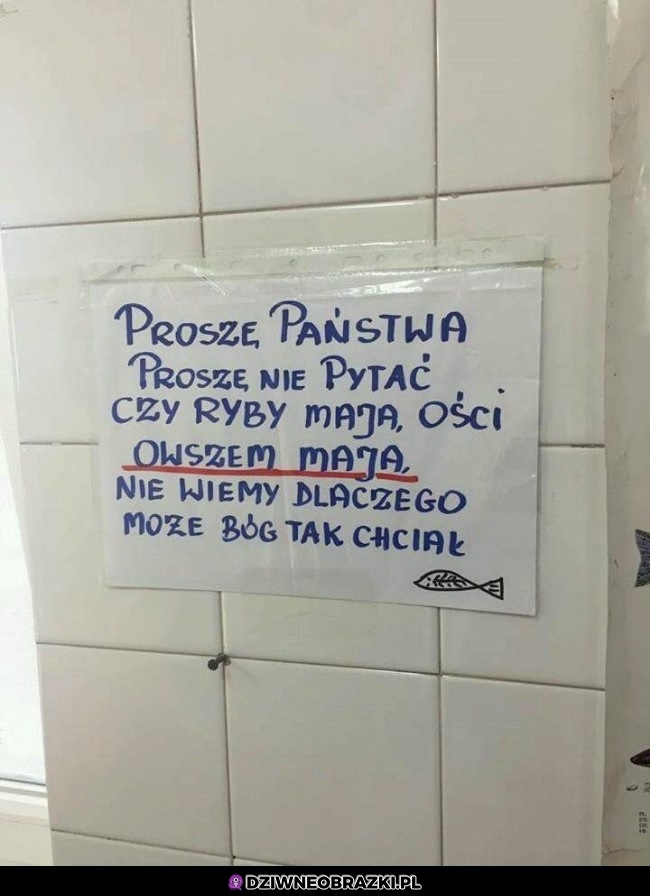 PROSZĘ PAŃSTWA
PROSZĘ NIE PYTAĆ
CZY RYBY MAJĄ OŚCI
OWSZEM MAJĄ
NIE WIEMY DLACZEGO
MOŻE BÓG TAK CHCIAŁ
DZIWNEOBRAZKI.PL